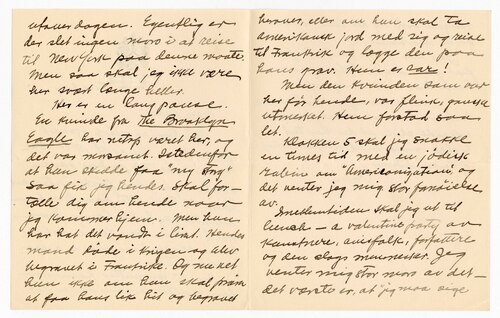 utover dagen. Egentlig er
der slet ingen moro i at reise
til New York paa denne maate.
Men saa skal jeg ikke være
her svært længe heller.
Her er en lang pause.
En kvinde fra The Brooklyn
Eagle har netop været her, og
det var morsomt. Istedenfor
at hun skulde faa "my story"
saa fik jeg hendes. Skal for-
tælle dig om hende naar
jeg kommer hjem. Men hun
har hat det vondt i livet. Hendes
mand døde i krigen og blev
begravet i Frankrike. Og nu vet
hun ikke om hun skal
at faa hans lik hit og begravet
herover, eller om hun skal ta
amerikansk jord med sig og reise
til Frankrik og lægge den paa
hans grav. Hun er rar!
Men den kvinden som var
her før hende, var flink, ganske
utmerket. Hun forstod saa
let.
Klokken 5 skal jeg snakke
en times tid med en jødisk
rabbi om "Americanization" og
det venter jeg mig stor fornøielse
av.
Imellemtiden skal jeg ut til
lunch – a valentine party av
kunstnere, forfattere
og den slags mennesker. Jeg
venter mig stor moro av det –
det værste er, at jeg maa sige